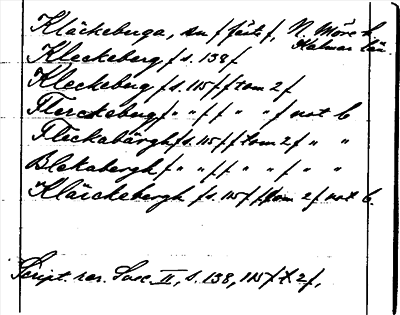 Kläckeberga, sn / fört /, N. Möre h.
Kalmar län.
Kleckeberg / s. 138 /
Kleckeberg / s. 115 / / tom 2 /
Flerckeberg / " " / / " " / not b
Fleckabärgh / s. 115 / / tom 2 / " "
Blekabergh / " " / / " " / " "
Klärckebergh / s. 115 / / tom 2 / not b.
Script. rer. Svec. II, s. 138, 115 / t 2 /,